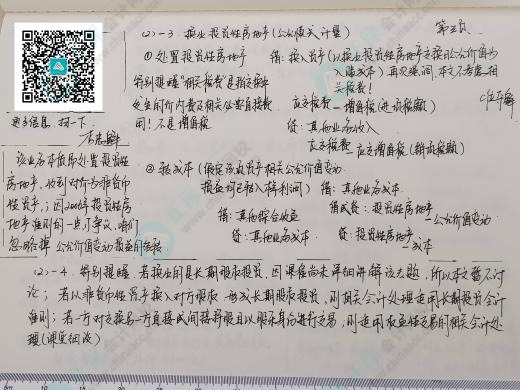 第三页
(2)-3. 换出投资性房地产(公允模式计量)
① 处置投资性房地产
借:换入资产(以换出投资性房地产交换日公允价值为
入账成本)再次强调,本文不考虑相
关税费!
特别提醒"相关税费"是指交换中
发生的有关的费及相关必要直接费
用!不是增值税
应交税费—增值税(进项税额)
贷:其他业务收入
应交税费—应交增值税(销项税额)
更多信息,扫一下
② 转成本(假定该资产相关公允价值变动
损益均已转入本利润)
借:其他业务成本
借:其他综合收益
贷:其他业务成本
借或贷:投资性房地产
—公允价值变动
贷:投资性房地产
—成本
该业务本质即处置投资性
房地产,收到对价为非货币
性资产;因2006年投资性房
地产准则有一点小争议,咱们
忽略掉公允价值变动损益的结转
(2)-4. 特别提醒:若换出的是长期股权投资,因课程尚未详细讲解该专题,所以本文暂不讨
论;若以非货币性资产换入对方股权,形成长期股权投资,则相关会计处理适用长期股权投资会计
准则;若一方对交易另一方直接或间接持股且以股东身份进行交易,则适用权益性交易的相关会计处
理(课堂细谈)